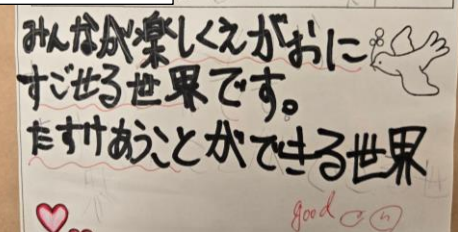 みんなが楽しくえがおに
すごせる世界です。
たすけあうことができる世界
good